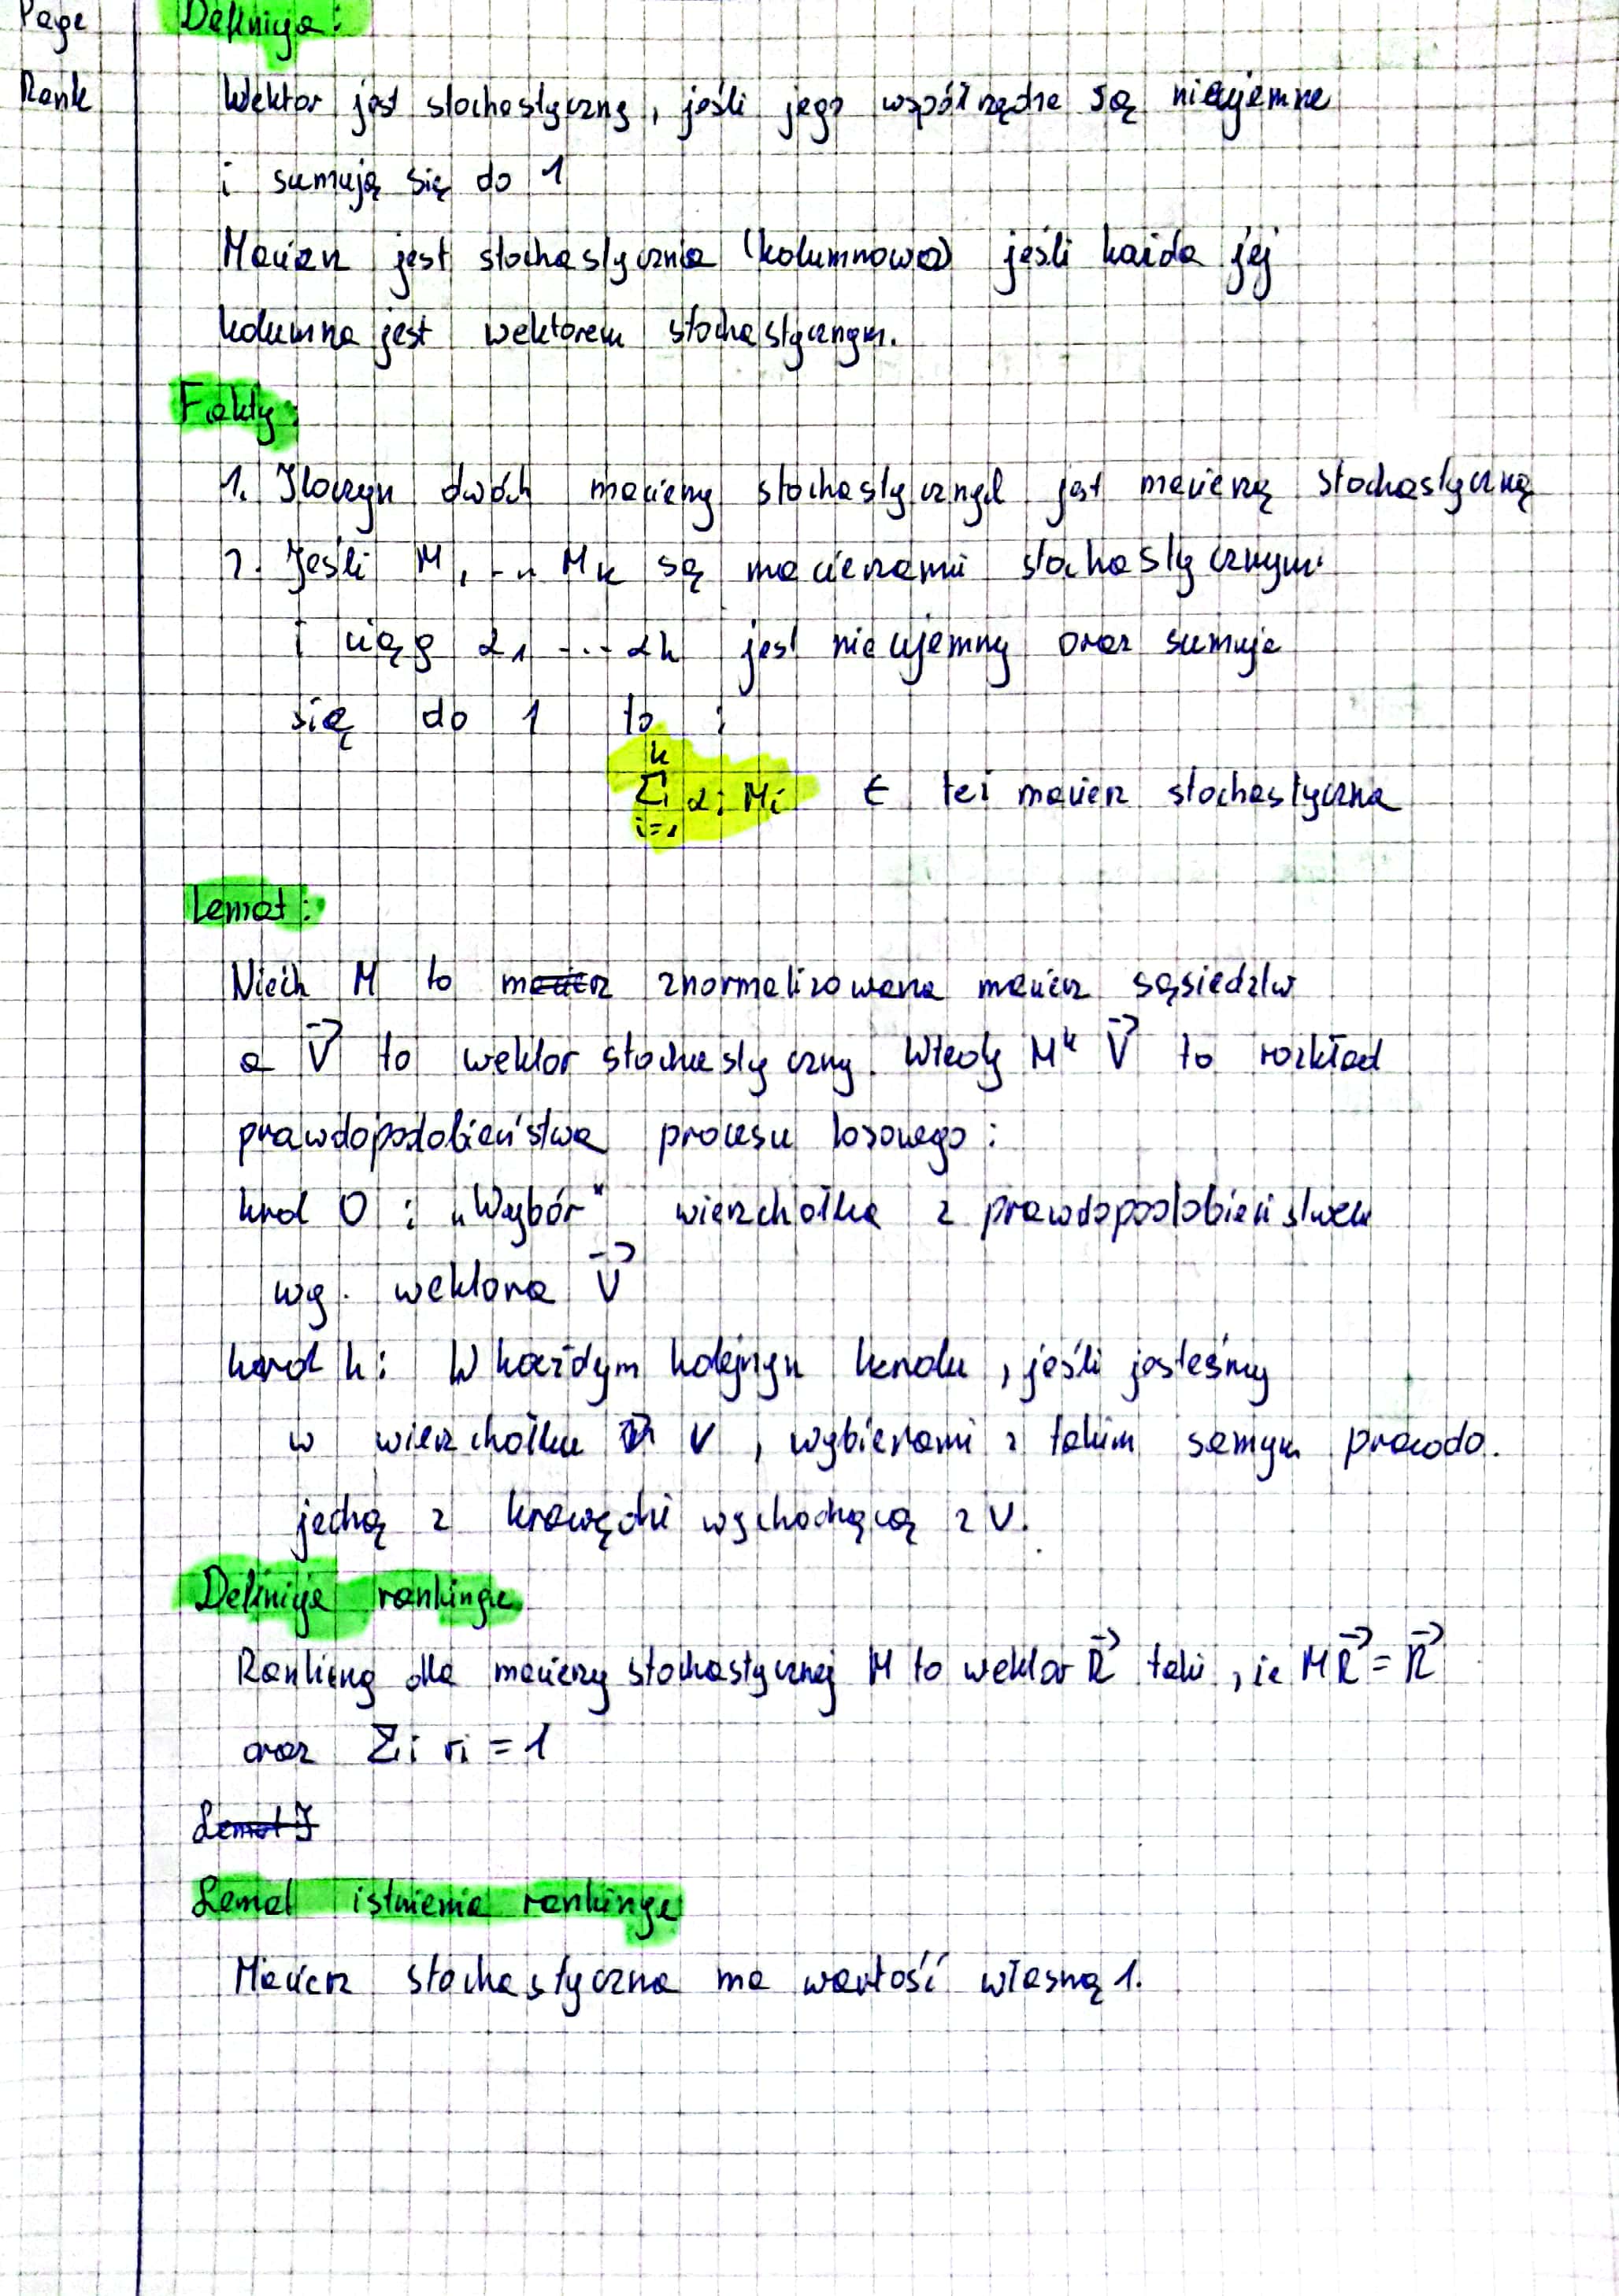 Page
Rank
Definicja:
Wektor jest stochastyczny, jeśli jego współrzędne są nieujemne
i sumują się do 1
Macierz jest stochastyczna (kolumnowo) jeśli każda jej
kolumna jest wektorem stochastycznym.
Fakty:
1. Iloczyn dwóch macierzy stochastycznych jest macierzą stochastyczną
2. Jeśli M₁ ... Mk są macierzami stochastycznymi
i ciąg α₁ ... αk jest nieujemny oraz sumuje
się do 1 to :
k
Σ αi Mi ← też macierz stochastyczna
i=1
Lemat:
Niech M to macierz znormalizowana macierz sąsiedztw
a V⃗ to wektor stochastyczny. Wtedy Mᵏ V⃗ to rozkład
prawdopodobieństwa procesu losowego:
krok 0 : „Wybór" wierzchołka z prawdopodobieństwem
wg. wektora V⃗
krok k: W każdym kolejnym kroku, jeśli jesteśmy
w wierzchołku V, wybieramy z takim samym prawdo.
jedną z krawędzi wychodzącą z V.
Definicja rankingu
Ranking dla macierzy stochastycznej M to wektor R⃗ taki, że MR⃗ = R⃗
oraz Σi ri = 1
Lemat I
Lemat istnienia rankingu
Macierz stochastyczna ma wartość własną 1.